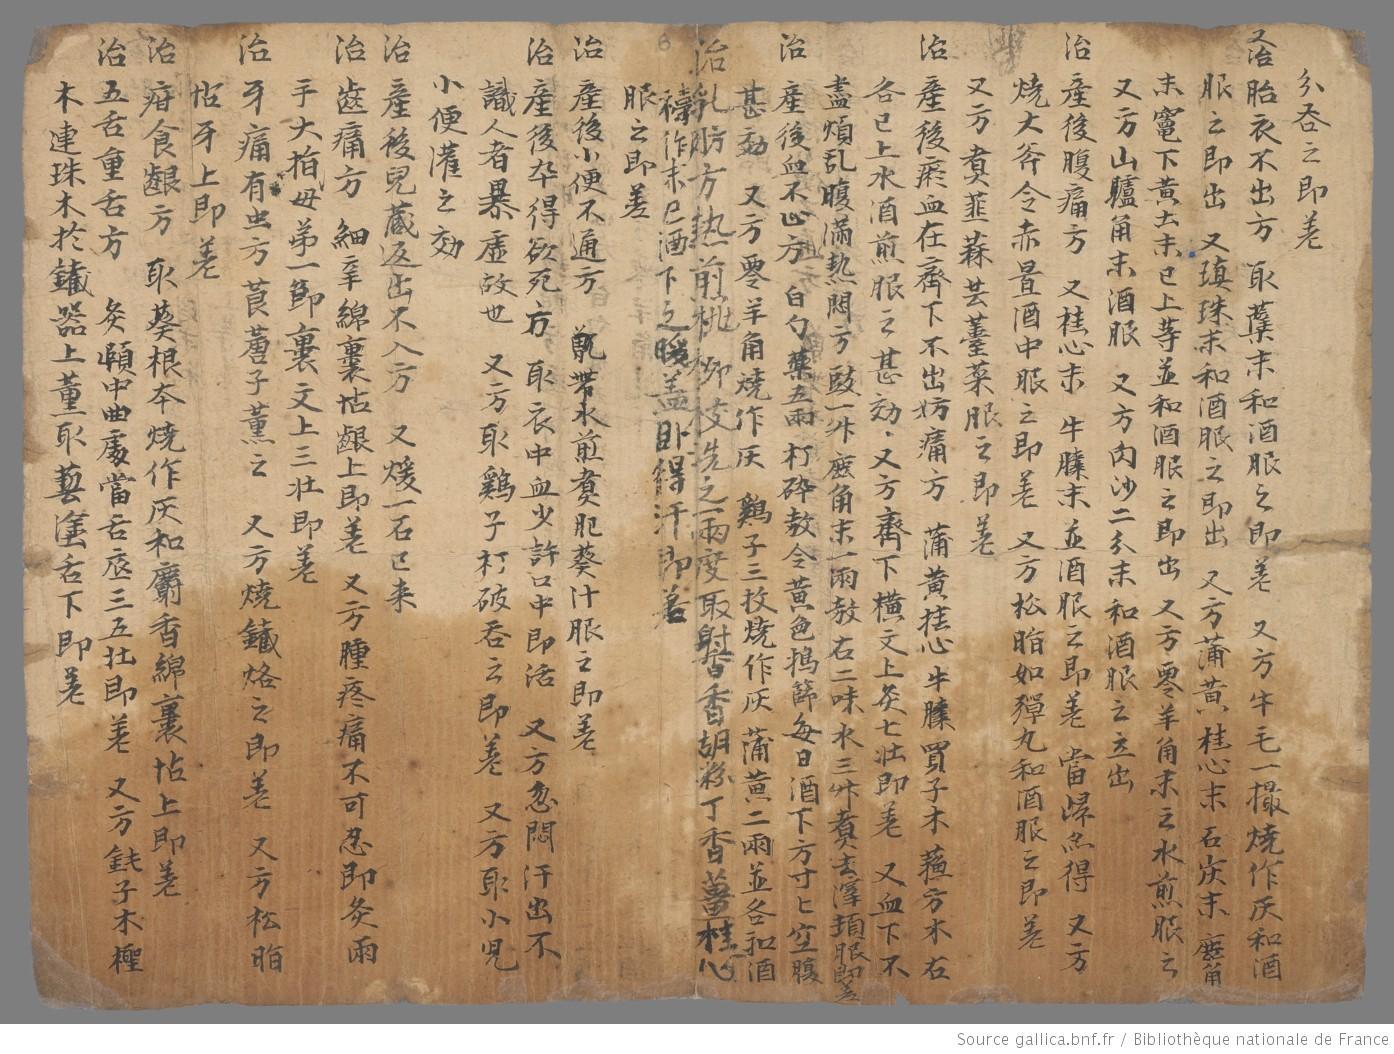 分吞之即差
治胎衣不出方 取藁末和酒服之即差 又方牛毛一撮燒作灰和酒
服之即出 又瑱珠末和酒服之即出 又方蒲黃桂心末 石灰末 麃角
末竈下黃土末已上等並和酒服之即出 又方零羊角末之水煎服之
又方山驢角末酒服 又方內沙二分末和酒服之立出
治產後腹痛方 又桂心末 牛膝末並酒服之即差 當歸亦得 又方
燒大斧令赤置酒中服之即差 又方松脂如彈丸和酒服之即差
又方煮韮蘇芸薹菜服之即差
治產後瘀血在齊下不出妨痛方 蒲黃桂心牛膝買子木蘓方木右
各已上水酒煎服之甚効 又方齊下橫文上灸七壯即差 又血下不
盡煩乱腹滿熱悶方豉一升麃角末一兩熬右二味水三升煮去滓頓服即差
治產後血不止方 白勺藥五兩打碎熬令黃色搗篩每日酒下方寸匕空腹
甚効 又方零羊角燒作灰 鷄子三枚燒作灰 蒲黃二兩並各和酒
治乳肪方熱煎桃柳枝洗之兩度取射香胡粉丁香薑桂心
擣作末已酒下之暖盖卧得汗即差
服之即差
治產後小便不通方 甑帶水煎煑肥葵汁服之即差
治產後卒得欲死方 取衣中血少許口中即活 又方忽悶汗出不
識人者暴虛故也 又方取鷄子打破吞之即差 又方取小兒
小便灌之効
治產後兒藏返出不入方 又煖一石已來
治齒痛方 細辛綿裹怗齦上即差 又方腫疼痛不可忍即灸兩
手大拍母弟一節裏文上三壯即差
治牙痛有虫方 莨菪子薰之 又方燒鐵烙之即差 又方松脂
怗牙上即差
治疳食齦方 取葵根本燒作灰和麝香綿裹怗上即差
治五舌重舌方 灸頤中曲處當舌底三五壯即差 又方鈍子木樫
木連珠木於鐵器上薰取藝塗舌下即差